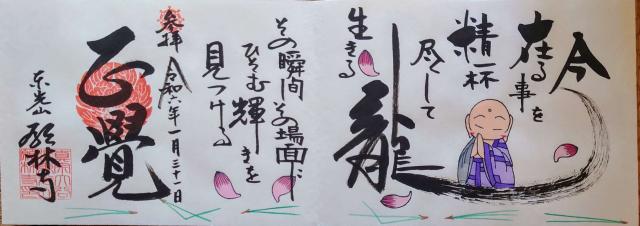 今
在る事を
精一杯
尽くして
龍
生きる
その瞬間その場面に
ひそむ輝きを
見つける
参拝
令和六年一月三十一日
正覺
願林寺